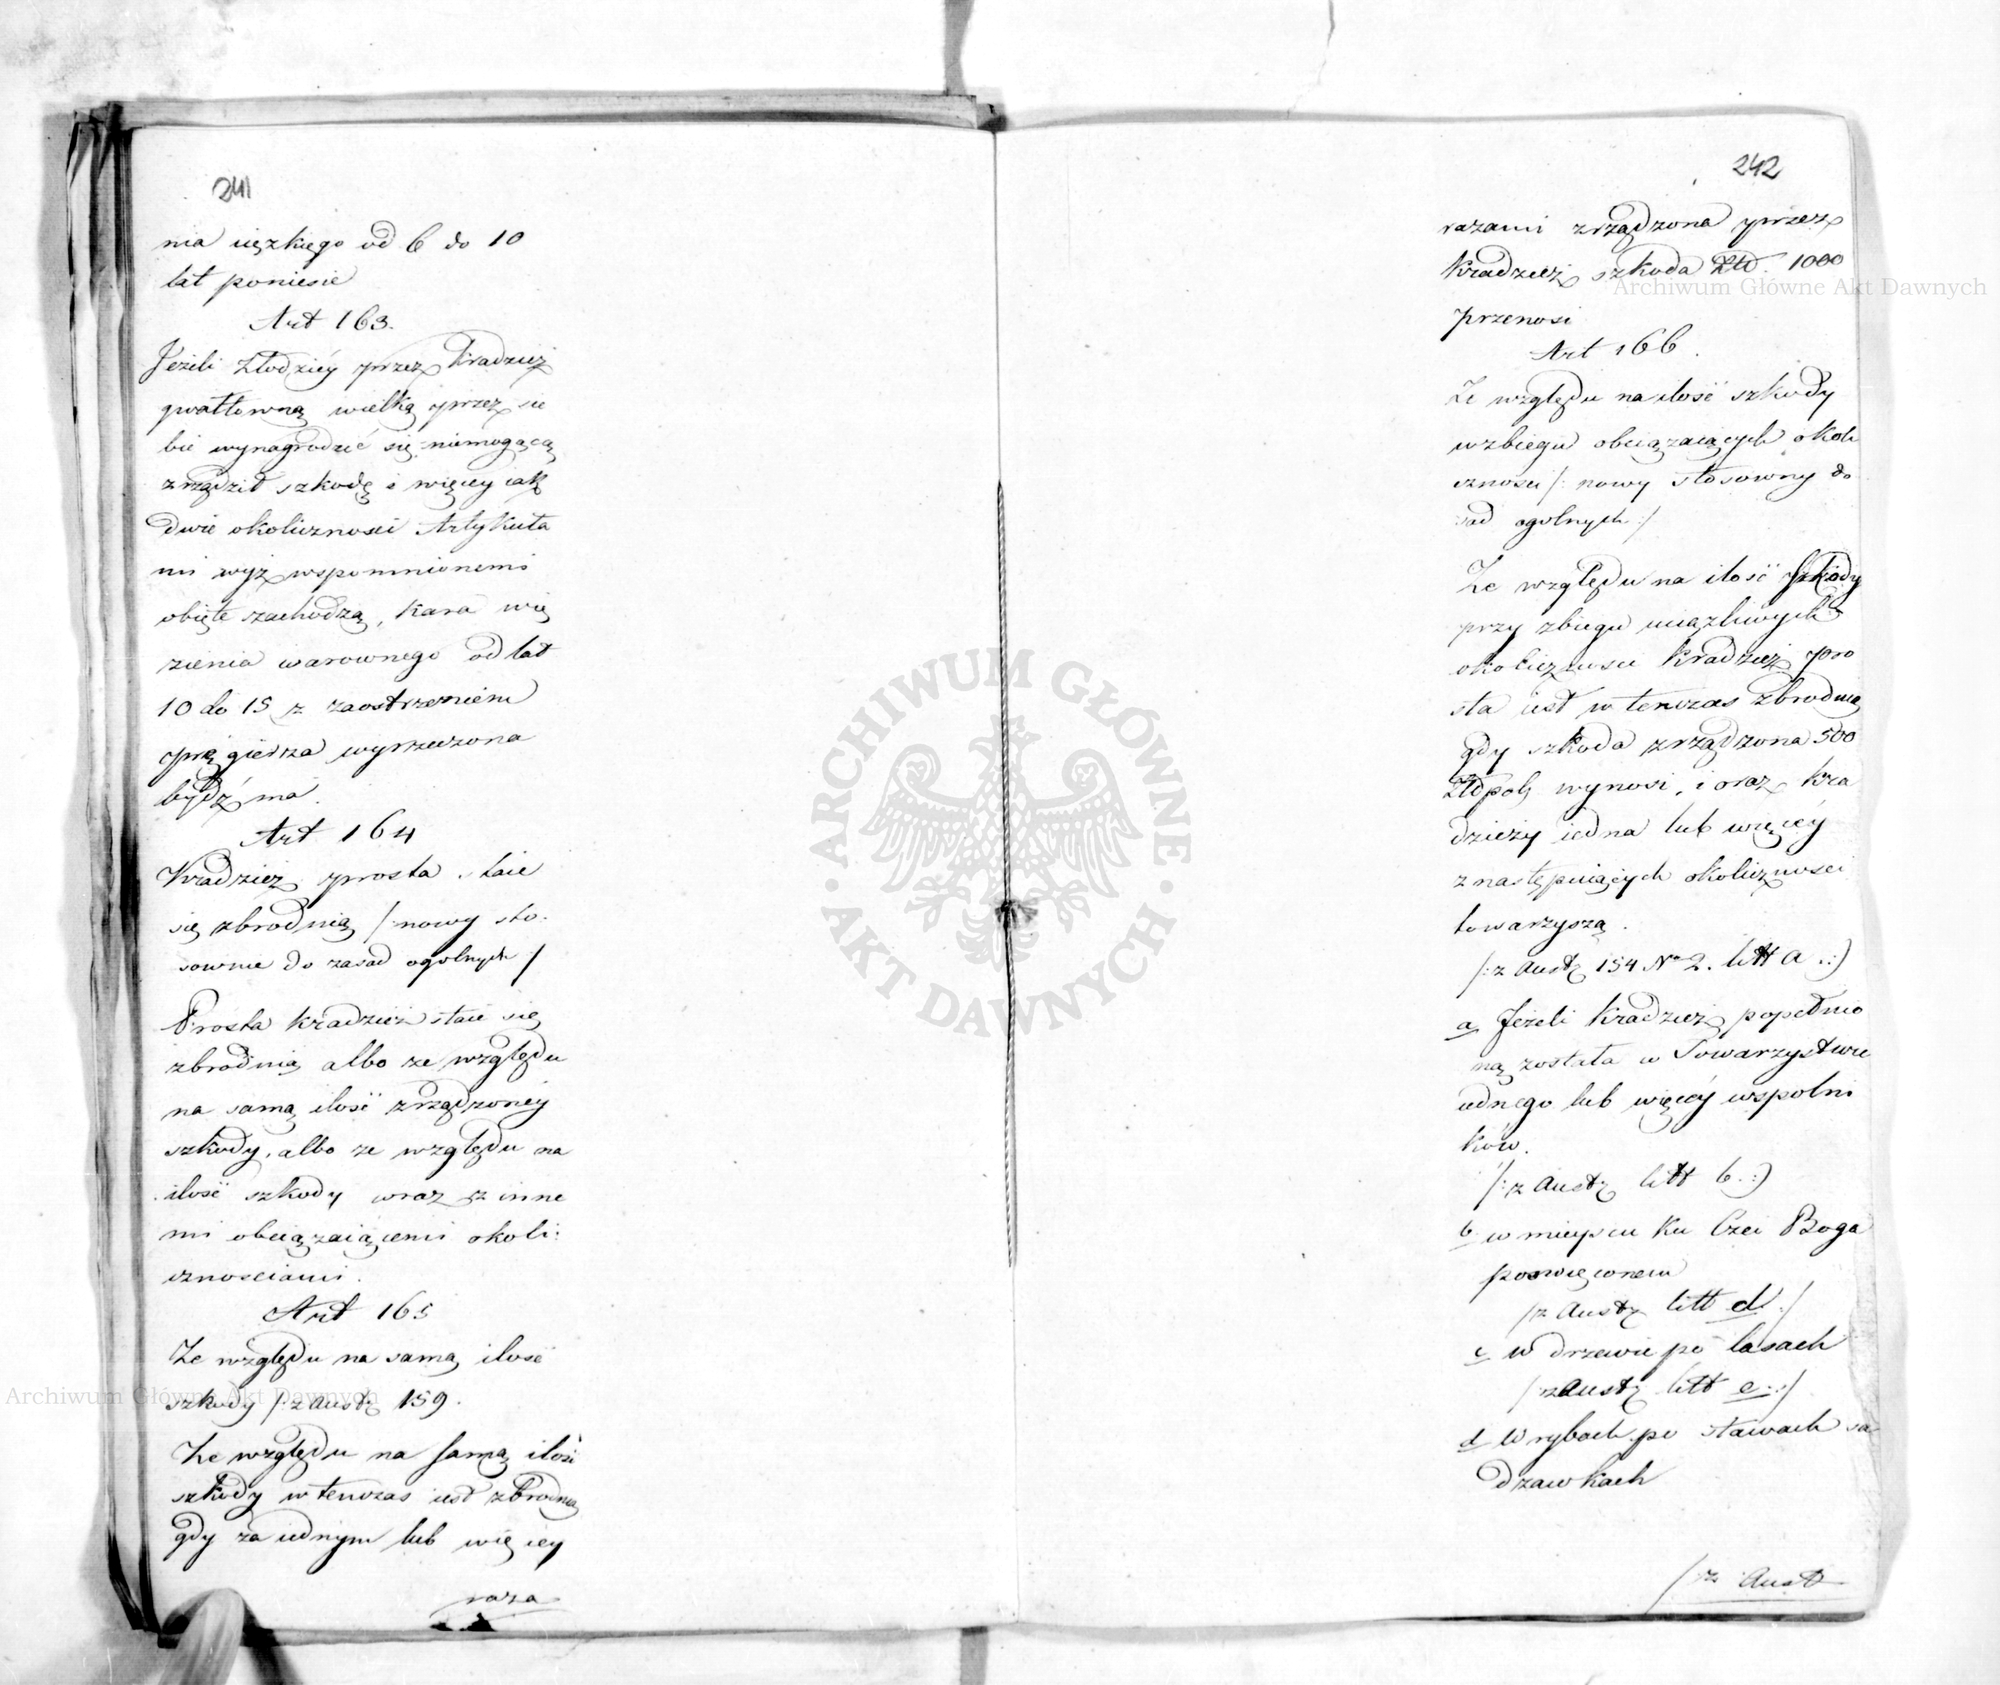 241
nia cięzkiego od 6 do 10
lat poniesie
Art 163.
Jeżeli Złodziéy przez kradzież
gwałtowną wielką przez sie
bie wynagrodzić się niemogącą
zrządził szkodę i więcey iak
dwie okoliczności Artykuła
mi wyż wspomnionemi
obięte zachodzą, kara wię
zienia warownego od lat
10 do 15 z zaostrzeniem
pręgierza wyrzeczona
bydź ma.
Art 164
Kradzież prosta staie
się zbrodnią /: nowy sto-
sownie do zasad ogolnych /
Prosta kradzież staie się
zbrodnią albo ze względu
na samą ilość zrządzoney
szkody, albo ze względu na
ilość szkody wraz z inne
mi obciązaiącemi okoli:
cznosciami.
Art 165
Ze względu na samą ilość
szkody /: z Austr 159.
Ze względu na samą ilość
szkody w tenczas iest zbrodnią
gdy za iednym lub więcey
raza
242
razami zrządzona przez
kradzież szkoda Złł. 1000
przenosi
Art 166.
Ze względu na ilość szkody
w zbiegu obciązaiących okoli
cznosci /: nowy stosowny do
sad ogolnych :/
Ze względu na ilość szkody
przy zbiegu uciązliwych
okoliczności kradzież pro
sta iest w tenczas zbrodnią
gdy szkoda zrządzona 500
Złłpols wynosi, i oraz kra
dzieży iedna lub więcéy
z następuiących okoliczności
towarzyszą.
/: z Austr 154 No 2. litt a :)
a Jeżeli kradzież popełnio
ną została w Towarzystwie
iednego lub więcéy wspolni
ków.
/: z Austr litt b :)
b w mieyscu ku Czci Boga
poswięconem
/ z Austr litt d :/
c w drzewie po lasach
/ z Austr litt e :/
d W rybach po stawach sa
dzawkach
/: z Austr
Archiwum Główne Akt Dawnych
Archiwum Główne Akt Dawnych
ARCHIWUM GŁÓWNE
AKT DAWNYCH